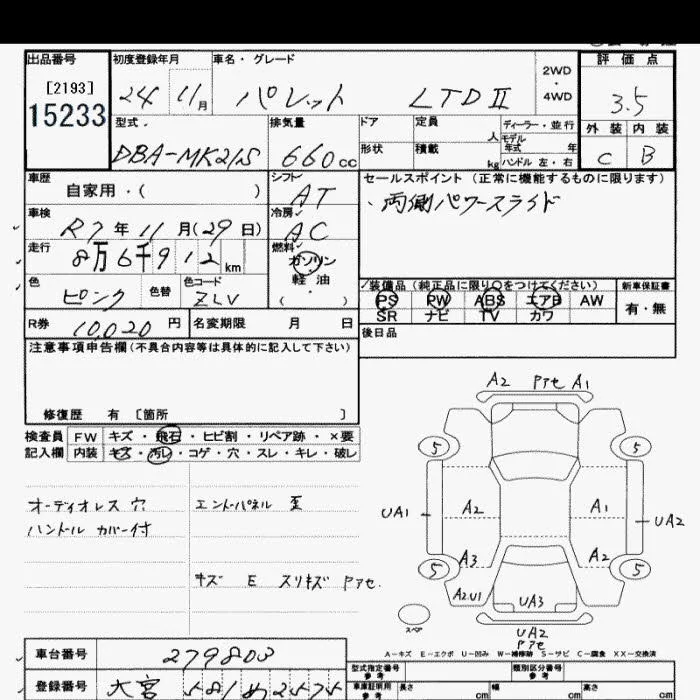 出品番号 初度登録年月 車名・グレード 2WD・4WD 評価点
[2193]
15233
24 11月 パレット LTDⅡ 3.5
型式 排気量 ドア 定員 人 ディーラー・並行 外装 内装
DBA-MK21S 660cc 形状 積載 kg モデル年式 年 C B
ハンドル 左・右
車歴 シフト セールスポイント (正常に機能するものに限ります)
自家用・( ) AT ・両側パワースライド
車検 冷房
R7年11月(29日) AC
走行 燃料
8万6千912km ガソリン
軽油
・
( )
色 色替 色コード ✓装備品(純正品に限り○をつけてください) 新車保証書
ピンク ZLV PS PW ABS エアB AW 有・無
SR ナビ TV カワ
R券 10,020円 名変期限 月 日 後日品
注意事項申告欄(不具合内容等は具体的に記入して下さい)
修復歴 有 〔箇所 〕
検査員 FW キズ・飛石・ヒビ割・リペア跡・×要
記入欄 内装 キズ・汚レ・コゲ・穴・スレ・キレ・破レ
オーディオレス 穴 エンドパネル 歪
ハンドル カバー付
キズ E スリキズ Pアセ
A2 Pアセ A1
5 5
UA1 A2 A1 UA2
A3 A2
5 5
A2.U1 UA3
スペア
UA2
Pアセ
A-キズ E-エクボ U-凹み W-補修跡 S-サビ C-腐食 XX-交換済
車台番号 279803
型式指定番号 類別区分番号
参考 参考
登録番号 大宮 581 め 2474
車庫証明用 参考 長さ cm 幅 cm 高さ cm